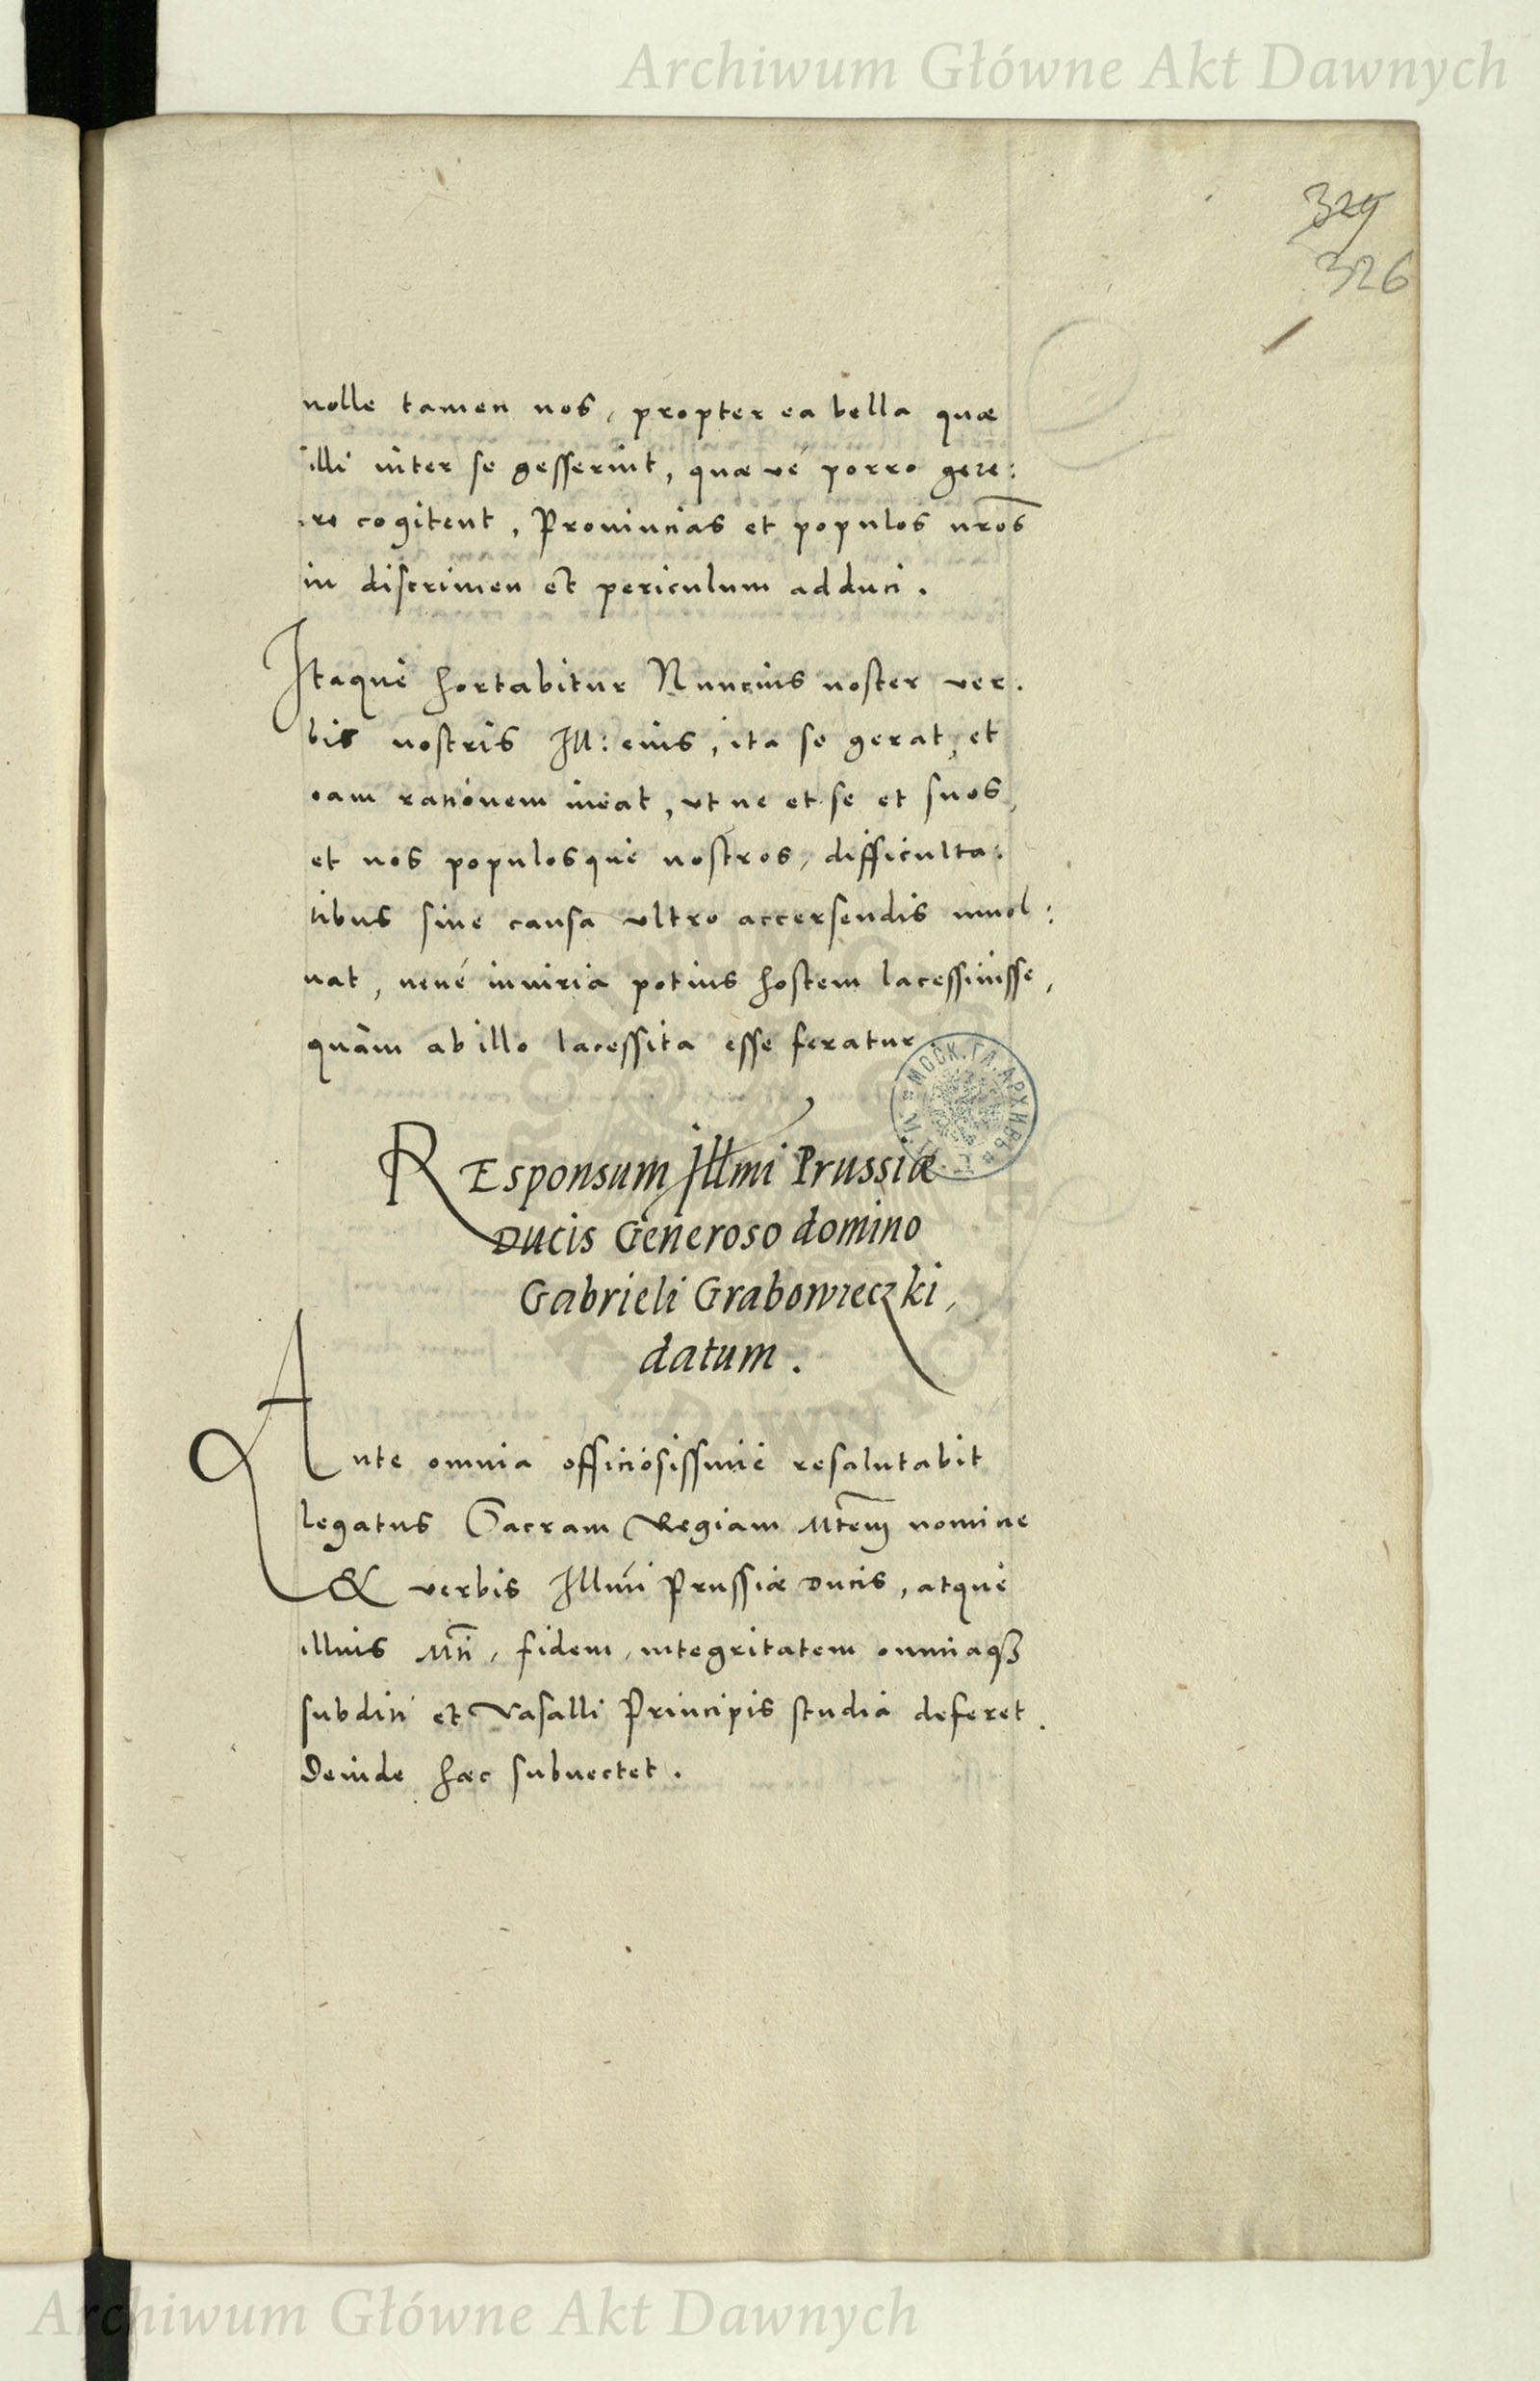 Archiwum Główne Akt Dawnych
329
326
nolle tamen nos, propter ea bella quæ
illi inter se gesserint, quæ vé porro gere:
re cogitent, Prouincias et populos nr̃os
in discrimen et periculum adduci.
Itaque hortabitur Nuncius noster ver.
bis nostris Ill: eius, ita se gerat, et
eam rationem ineat, vt ne et se et suos,
et nos populosque nostros, difficulta:
tibus sine causa vltro accersendis inuol:
uat, neué iniuria potius hostem lacessiuisse,
quàm ab illo lacessita esse feratur
REsponsum Illmi Prussiæ
Ducis Generoso domino
Gabrieli Grabowieczki,
datum.
Ante omnia officiosissime resalutabit
legatus Sacram Regiam Mtem nomine
& verbis Illmi Prussiæ Ducis, atque
illius Mti, fidem, integritatem omniaqȝ
subditi et Vasalli Principis studia deferet.
Deinde hæc subnectet.
МОСК. ГЛ. АРХИВЪ
Archiwum Główne Akt Dawnych